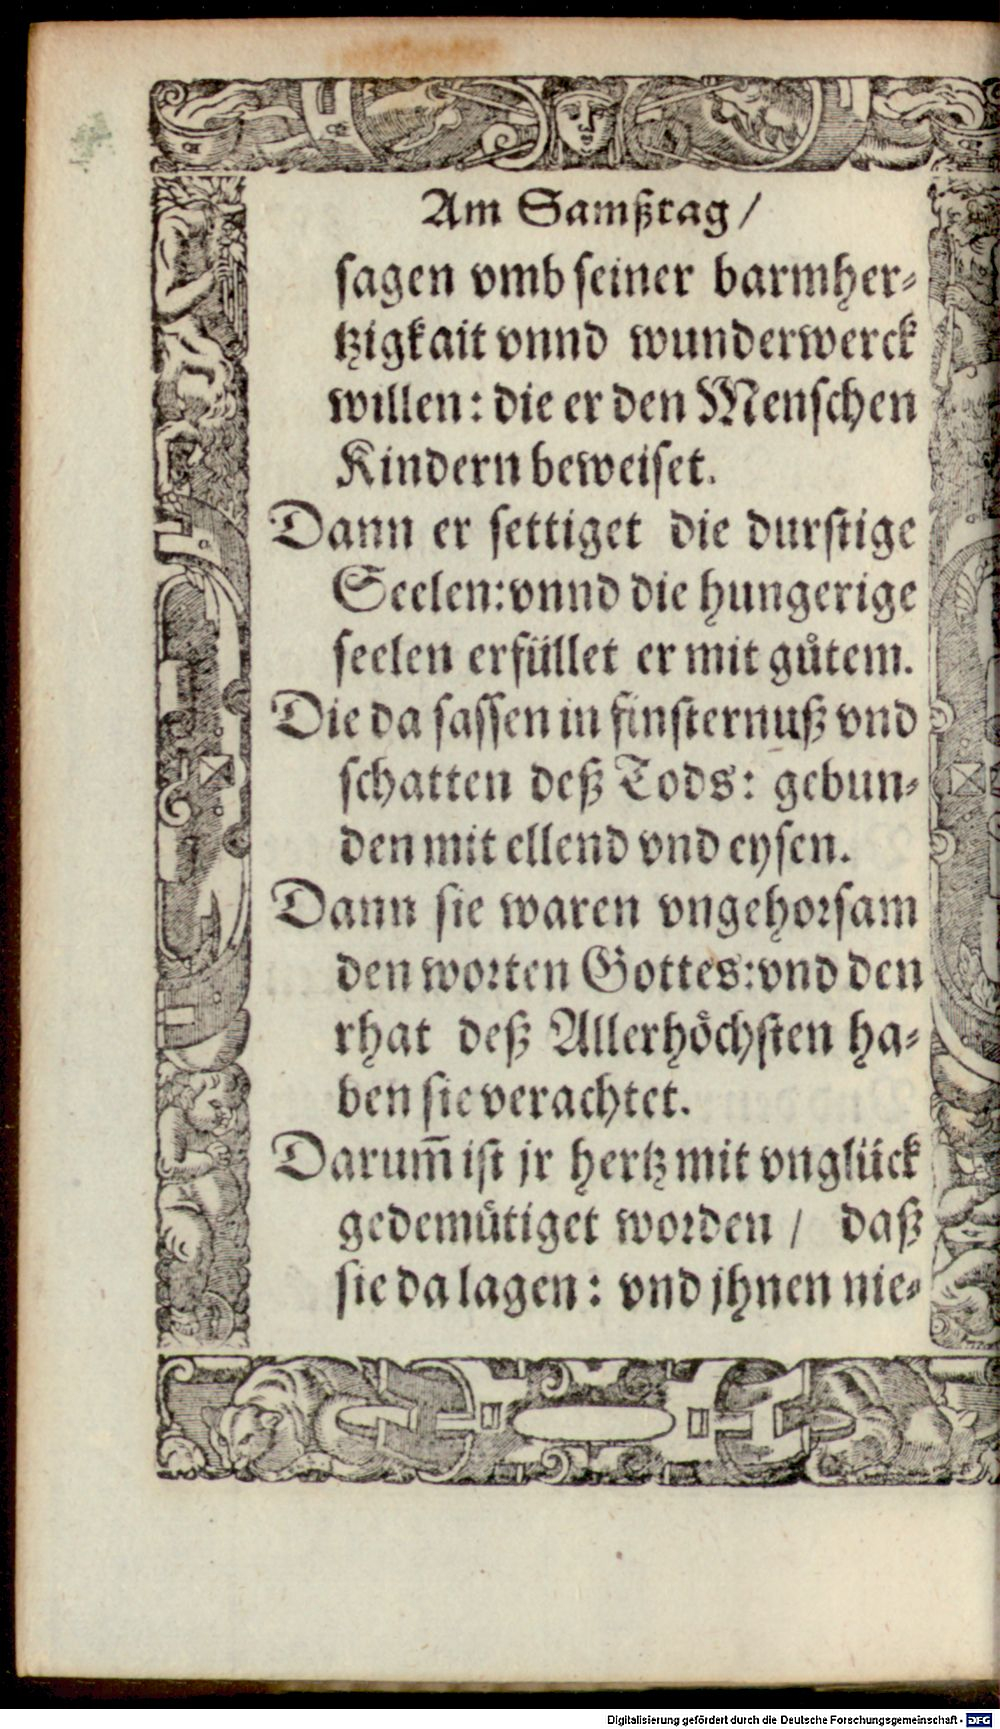 Am Samßtag /
sagen vmb seiner barmher⸗
tzigkait vnnd wunderwerck
willen: die er den Menschen
Kindern beweiset.
Dann er settiget die durstige
Seelen: vnnd die hungerige
seelen erfüllet er mit gůtem.
Die da sassen in finsternuß vnd
schatten deß Tods: gebun⸗
den mit ellend vnd eysen.
Dann sie waren vngehorsam
den worten Gottes: vnd den
rhat deß Allerhöchsten ha⸗
ben sie verachtet.
Darum̄ ist jr hertz mit vnglück
gedemütiget worden / daß
sie da lagen: vnd jhnen nie⸗
Digitalisierung gefördert durch die Deutsche Forschungsgemeinschaft - DFG